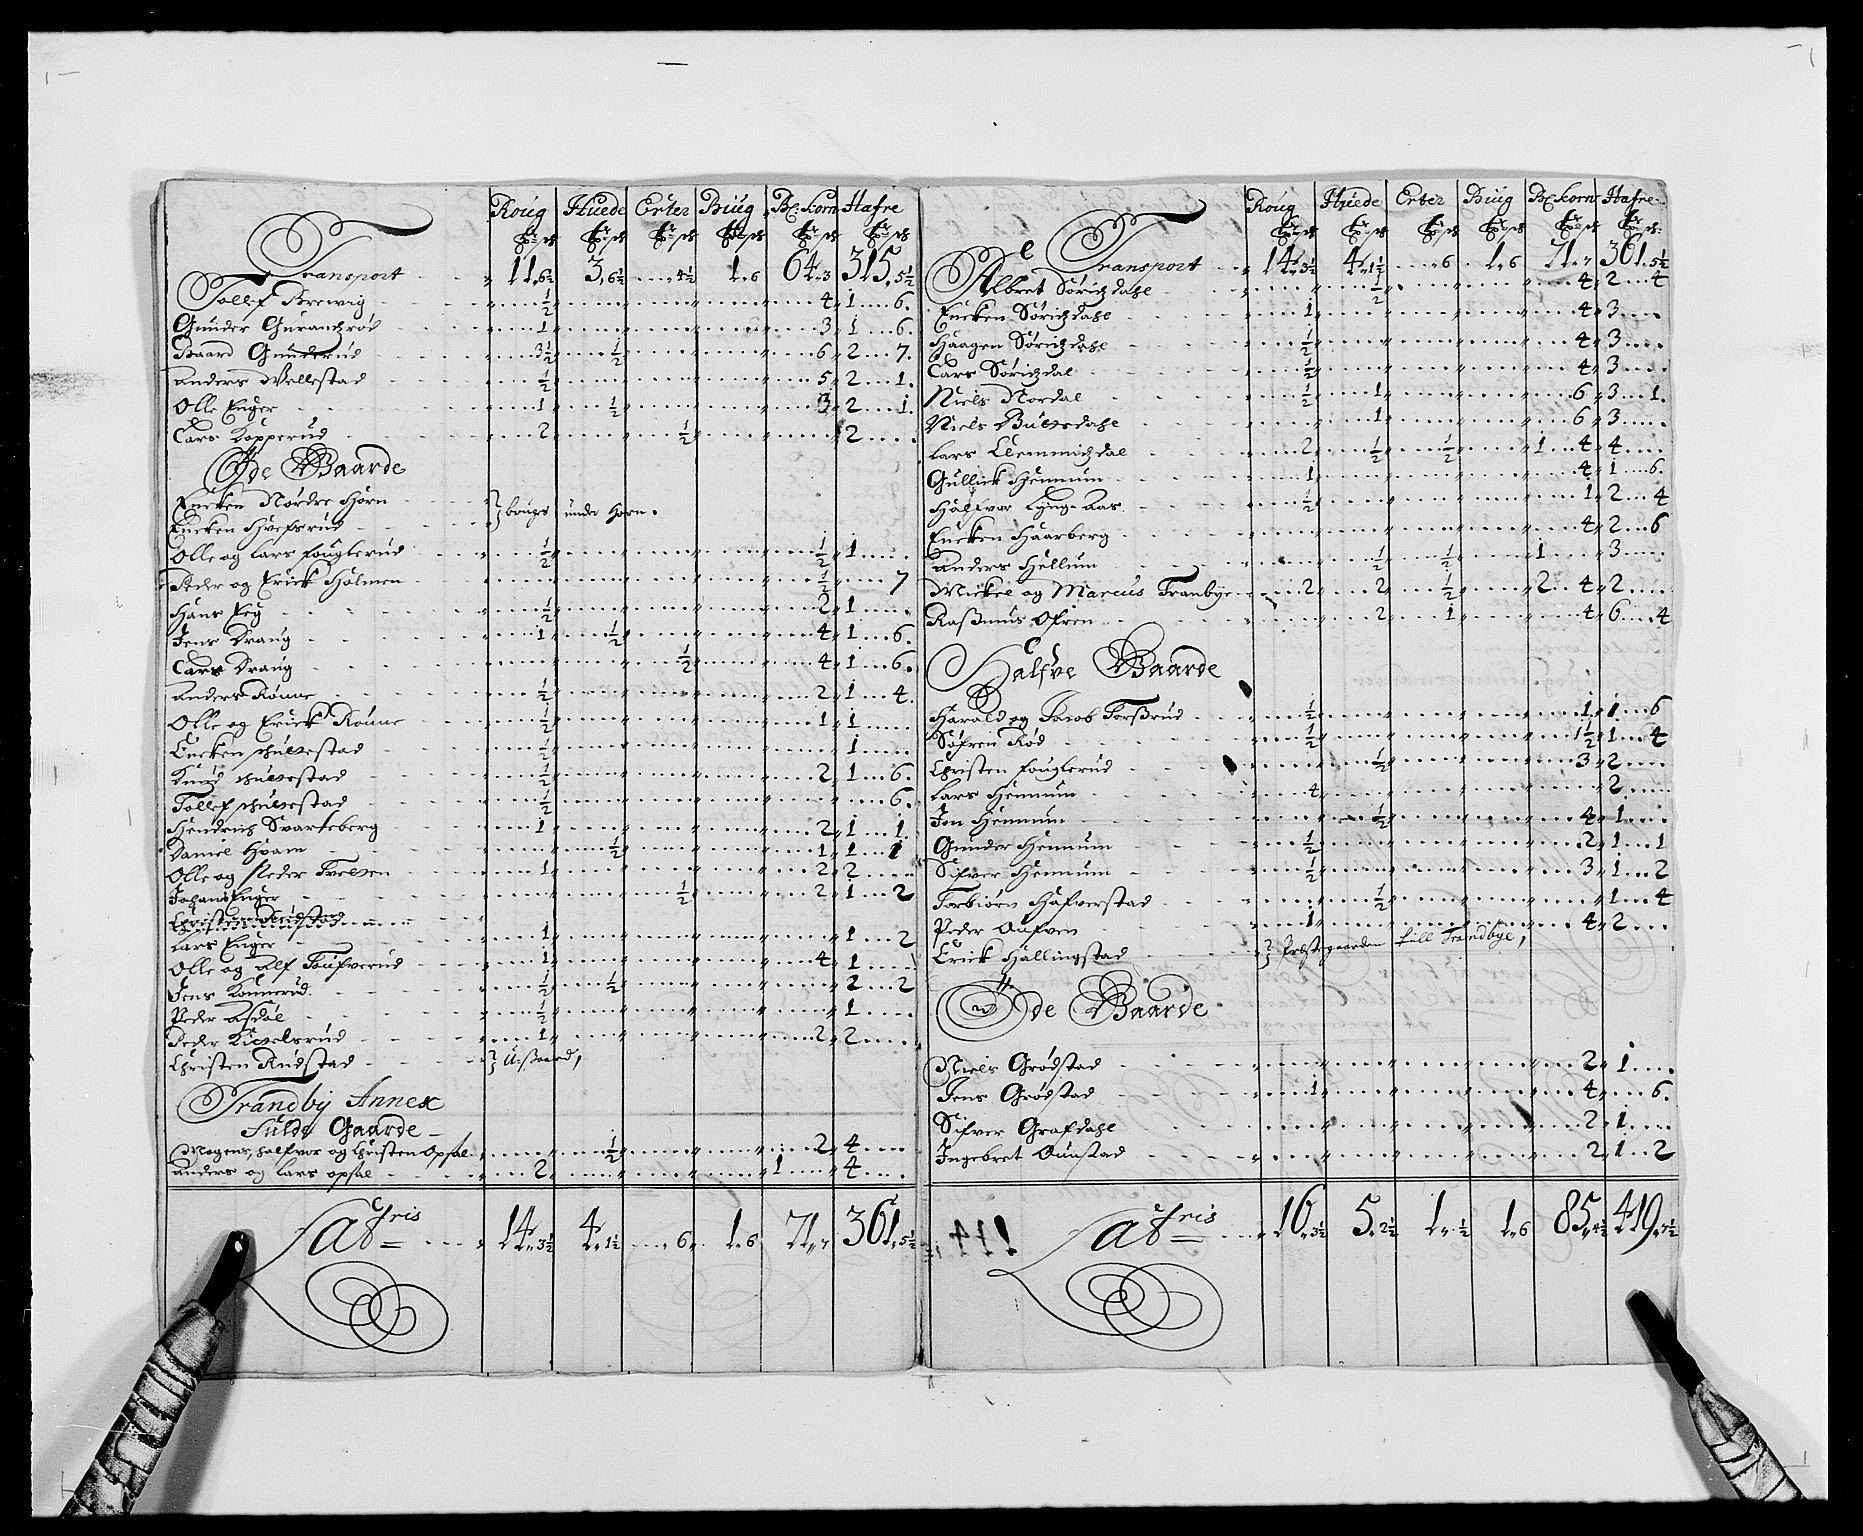 Roug Huede Erter Biug Bl: Korn Hafre
Transport 11. 6½ 3. 6½ 4½ 1. 6 64. 3 315. 5½
Tollef Brewig ½ 4 1 6
Gunder Gurandzrød 1 3 1 6
Baard Gunderud 3½ ½ 6 2 7
Anders Wellestad ½ 5 2 1
Olle Enger 1 ½ 3 2 1
Lars Kopperud 2 ½ 2
Øde Gaarde
Encken Nordre Horn } bruges under Horn.
Encken
Olle og Lars fouglerud ½ ½ 1
Peder og Erick Holmen ½ 7
Hans Eeg ½ 2 1
Jens Draug 1 ½ 4 1 6
Lars Draug ½ 4 1 6
Anders Rønne ½ 2 1 4
Olle og Erick Rønne ½ 1 1
Encken ½ 1
Knud ½ 2 1 6
Tollef ½ 6
Hendrich Svarteberg 1 2 1 1
Daniel Hvam ½ 1 1 1
Olle og Peder Tveten 1 2 2
Johans Enger ½ 2 1 2
Lars Enger 1 1 2
Olle og Alf 1 4 1
Jens Konnerud ½ ½ 2 2
Peder Asdøl ½ 1
Peder 1 2 2
Christen Rudstad }
Trandby Annex
Fulde Gaarde
Mogens, Halfvor og Christen Opsal ½ 2 4
Anders og Lars opsal 2 1 4
Latris 14. 3½ 4. 1½ 6 1. 6 71. 7 361. 5½
Roug Huede Erter Biug Bl: Korn Hafre
Transport 14. 3½ 4. 1½ 6 1. 6 71. 7 361. 5½
Albret Sørichdahl ½ 4 2 4
Encken Sørichdahl 1 4 3
Haagen Sørichdahl ½ 4 3
Lars Sørichdal ½ 4 3
Niels Nordal ½ 1 6 3 1
Niels 1 6 3
Lars 2 ½ ½ 1 4 4
Gullick Hennum 1 4 1 6
Halfvor Lyng-Aas ½ 1 2 4
Encken Haarberg 4 2 6
Anders Hellum ½ ½ 1 3
Mickel og Marcus Tranbye 2 2 ½ 2 4 2
Rasmus Ofren 2 1 4 6 4
Halfve Gaarde
Harald og Jacob Torsrud ½ 1 1 6
Søfren Rød ½ 1½ 1 4
Christen fouglerud ½ 3 2
Lars Hennum 4 2
Jon Hennum ½ 4 1
Gunder Hennum ½ 2 1 1
Sifver Hennum ½ 3 1 2
Torbiørn Hafverstad ½ 1 4
Peder 1 4 2
Erick Hallingstad } Prestegaarden till Trandbye,
Øde Gaarde
Niels Grødstad 2 1
Jens Grødstad 1 4 6
Sifver Grafdahl 2 1
Ingebret Oustad 2 1 2
Latris 16. 3½ 5. 2½ 1. ½ 1. 6 85. 4½ 419. 7½